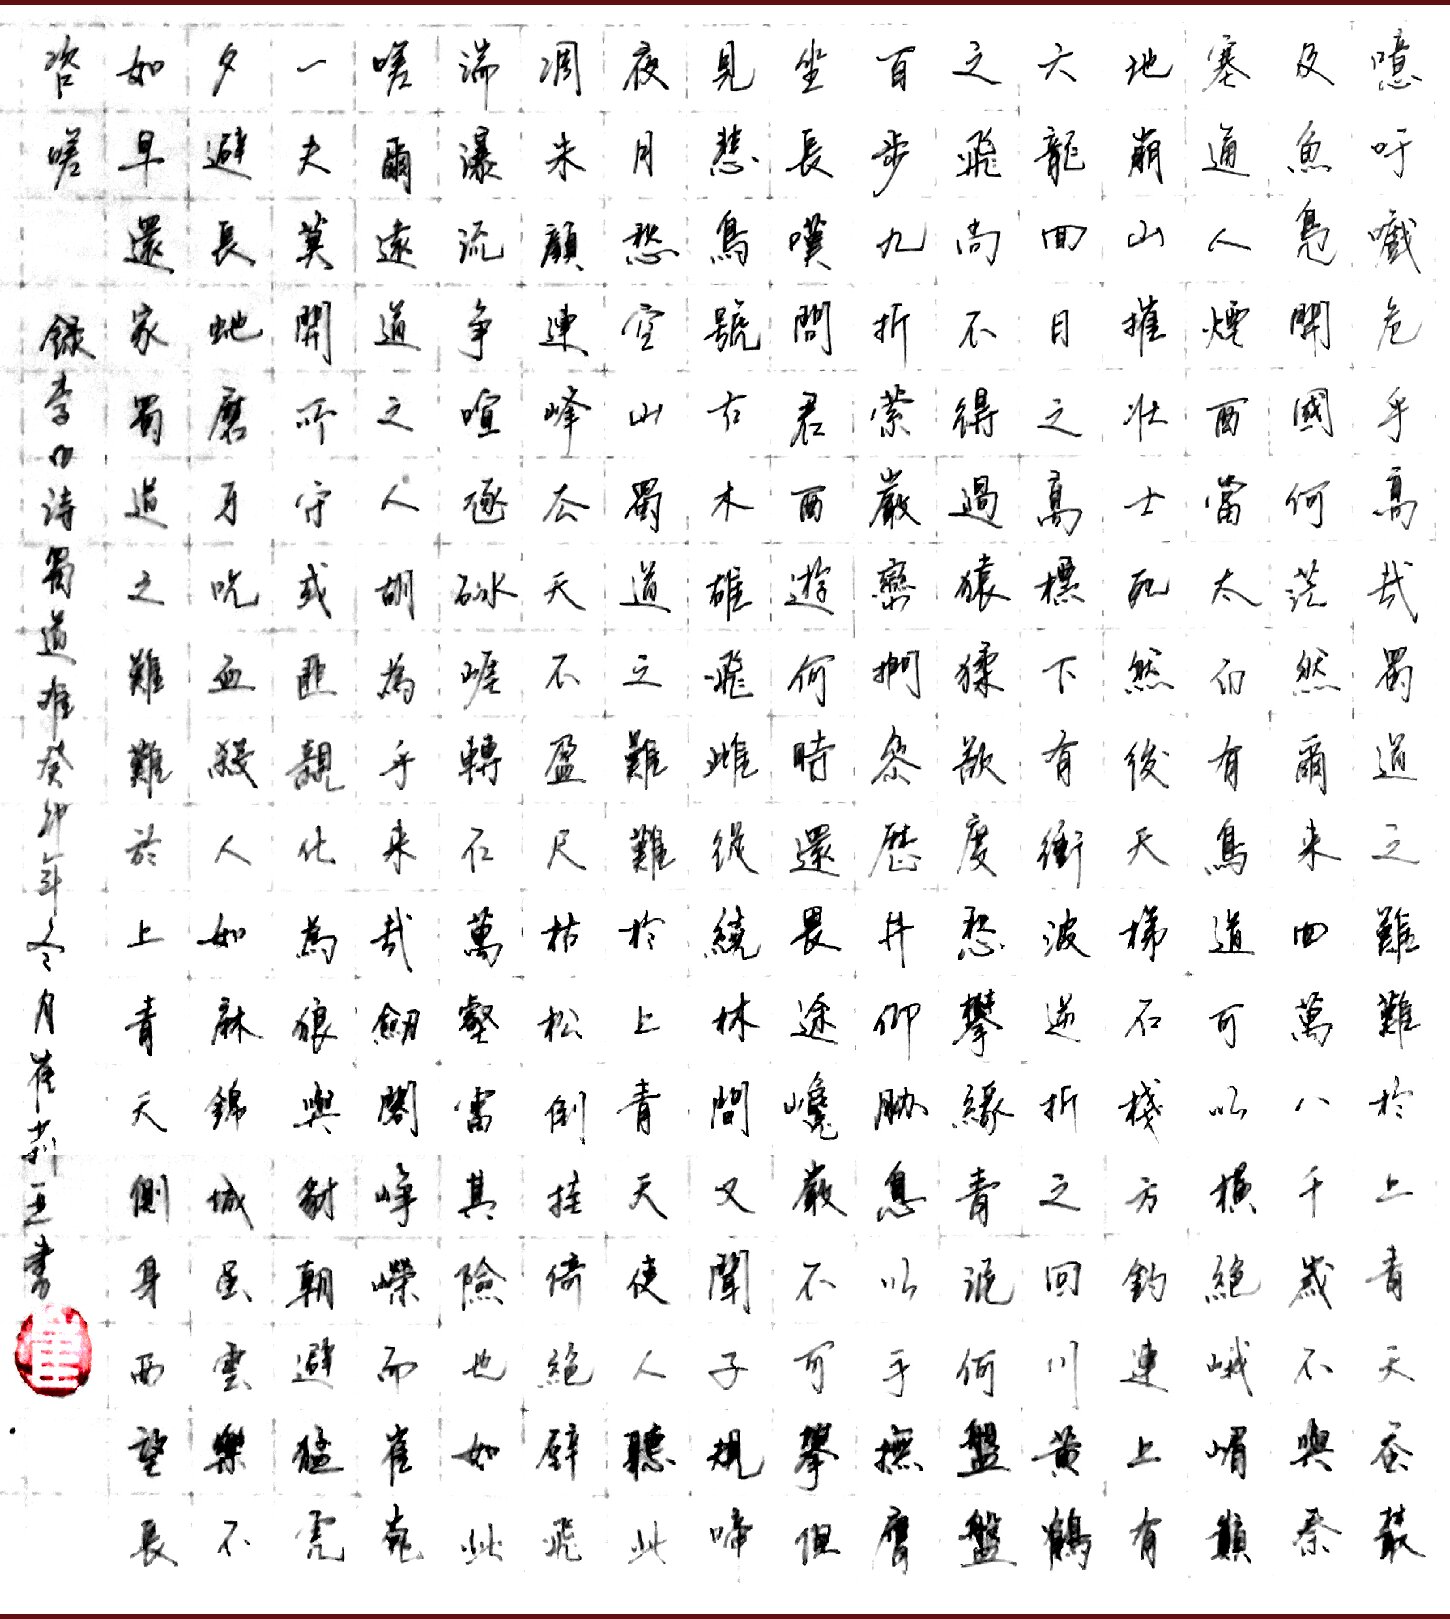 噫吁嚱危乎高哉蜀道之難難於上青天蚕叢
及魚鳧開國何茫然爾来四萬八千歲不與秦
塞通人煙西當太白有鳥道可以橫絕峨嵋巔
地崩山摧壯士死然後天梯石棧方鈎連上有
六龍回日之高標下有衝波逆折之回川黄鶴
之飛尚不得過猿猱欲度愁攀緣青泥何盤盤
百步九折縈巖巒捫參歷井仰脅息以手撫膺
坐長嘆問君西遊何時還畏途巉巖不可攀但
見悲鳥號古木雄飛雌從繞林間又聞子規啼
夜月愁空山蜀道之難難於上青天使人聽此
凋朱顏連峰去天不盈尺枯松倒挂倚絕壁飛
湍瀑流争喧豗砯崖轉石萬壑雷其險也如此
嗟爾遠道之人胡為乎来哉劍閣崢嶸而崔嵬
一夫莫開所守或匪親化為狼與豺朝避猛虎
夕避長蛇磨牙吮血殺人如麻錦城虽雲樂不
如早還家蜀道之難難於上青天側身西望長
咨嗟 録李白诗蜀道难癸卯年冬月崔莉書
崔